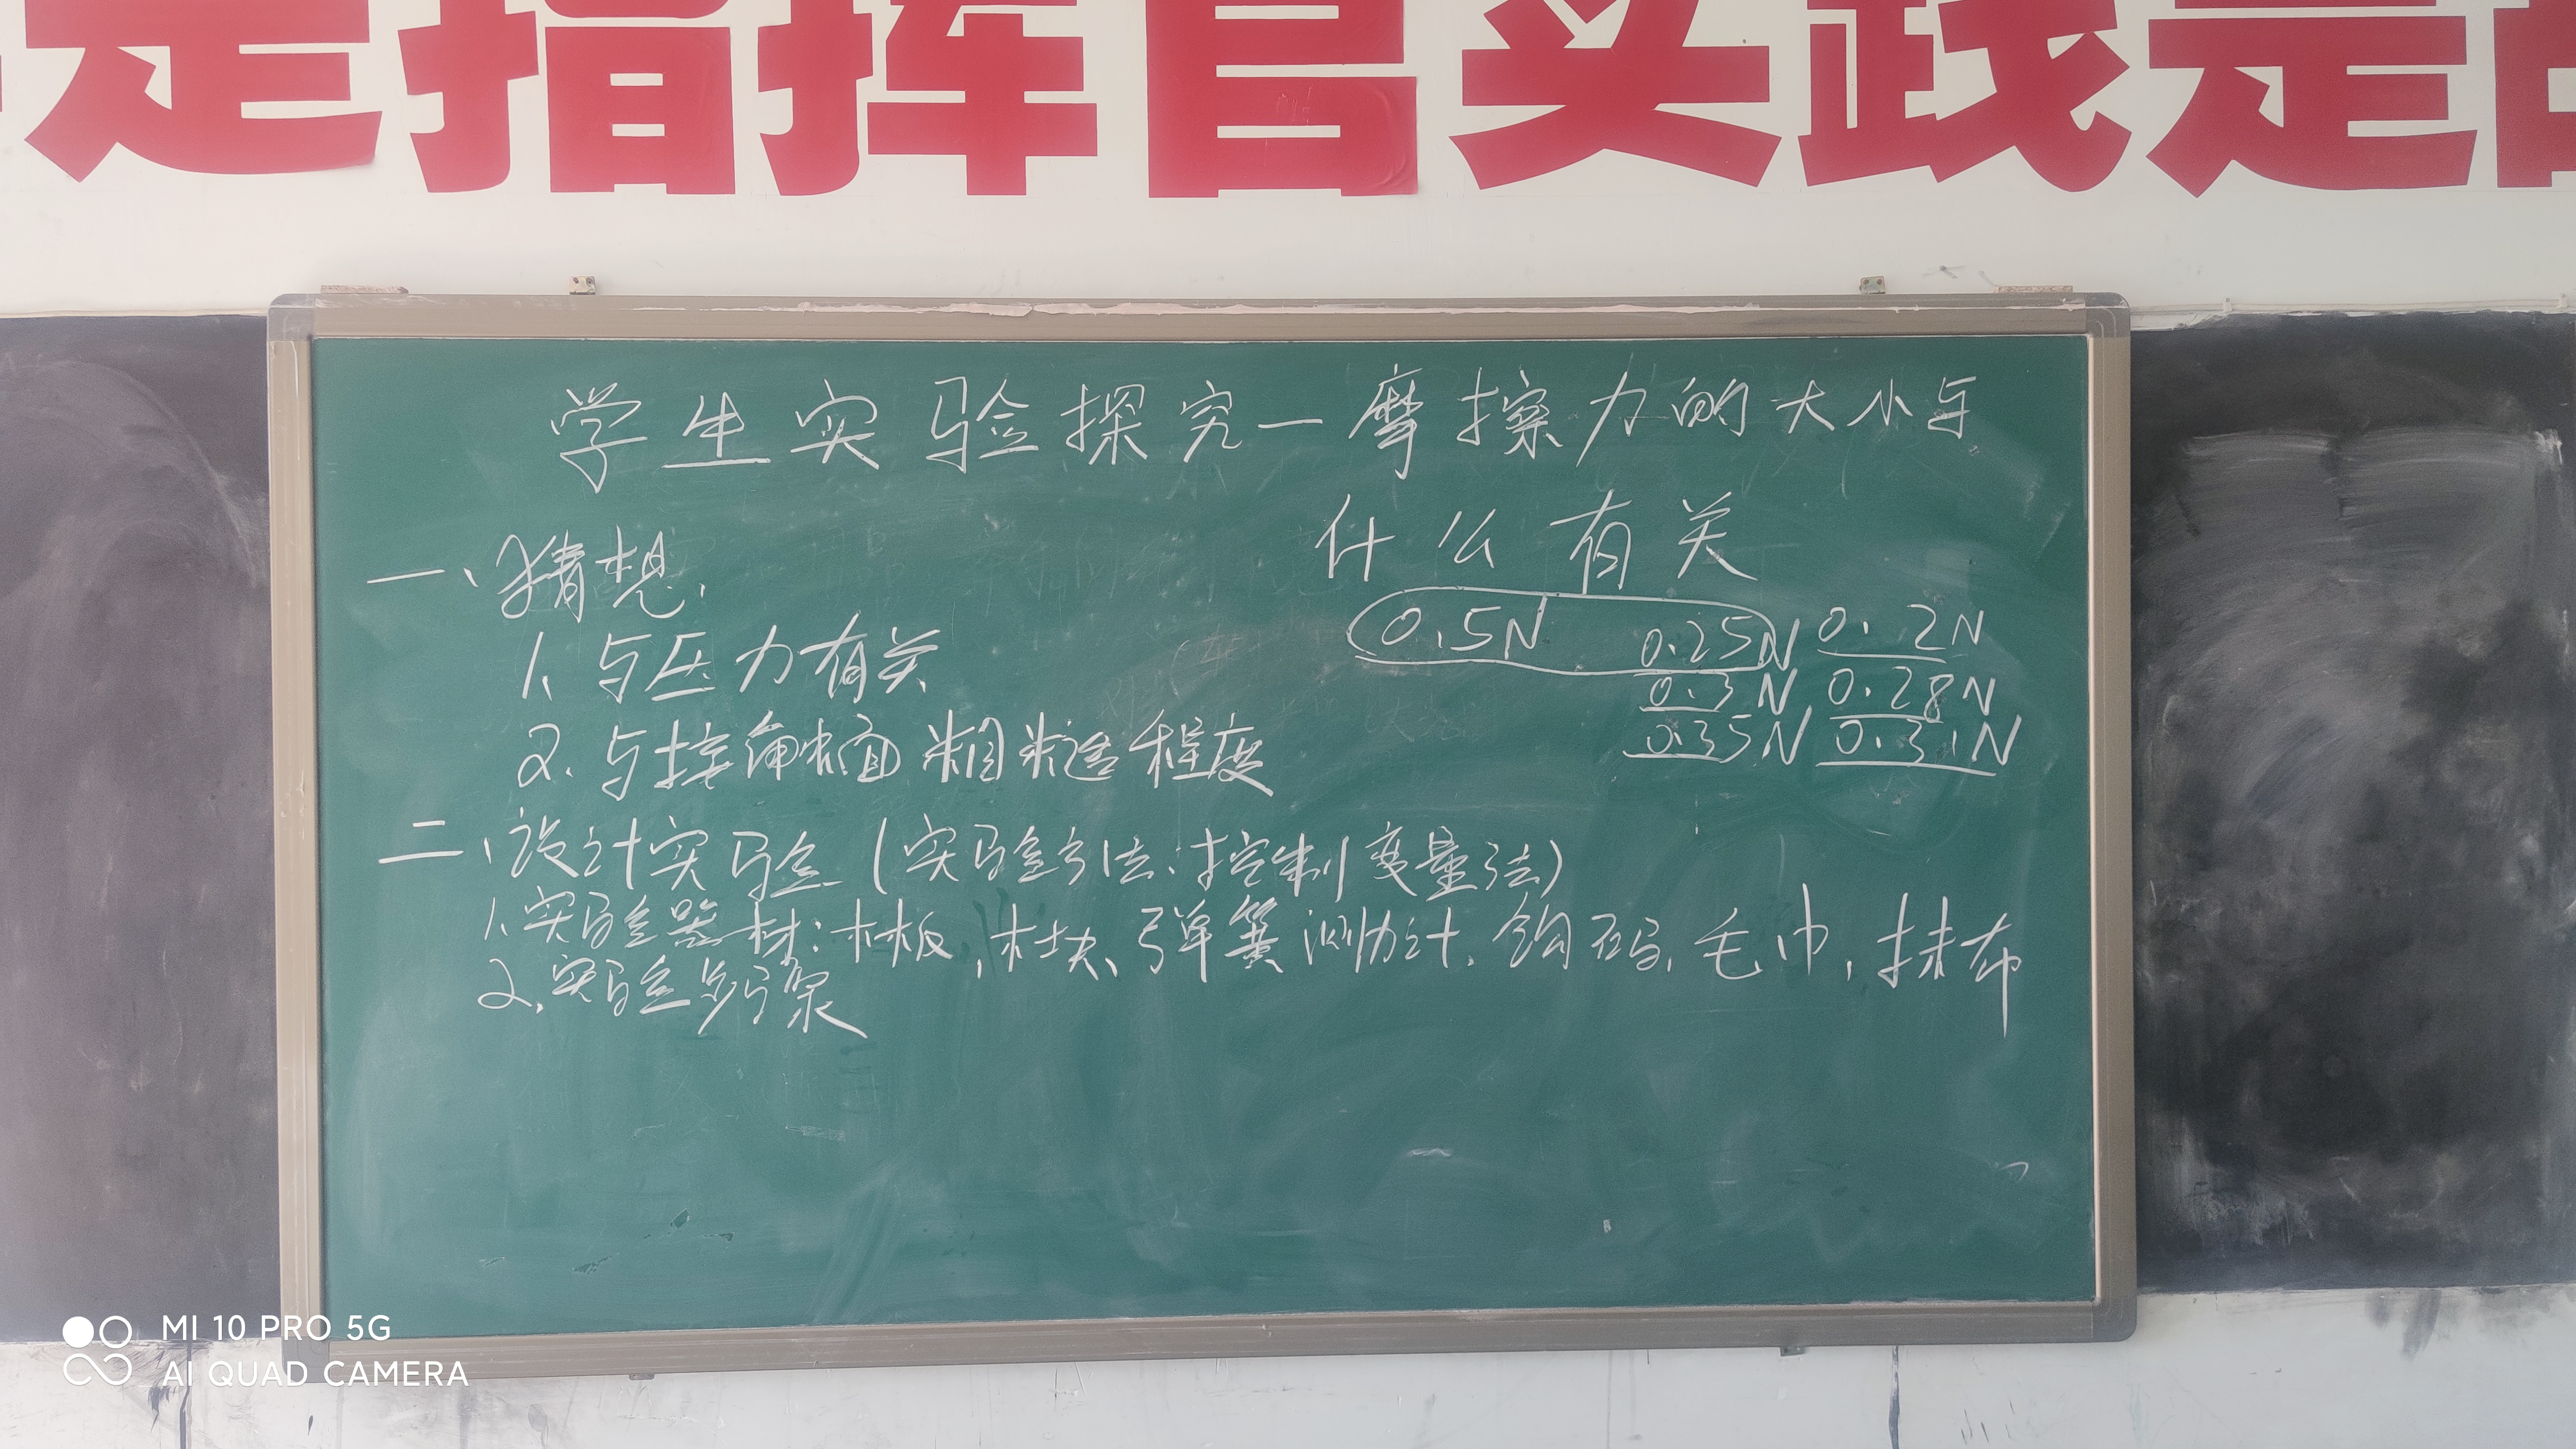 是指挥官实践是
学生实验探究—摩擦力的大小与
什么有关
一、猜想.
1、与压力有关
2.与接触面粗糙程度
0.5N 0.25N 0.2N
0.3N 0.28N
0.35N 0.31N
二、设计实验(实验方法、控制变量法)
1.实验器材:木板,木块、弹簧测力计.钩码,毛巾,抹布
2.实验步骤
MI 10 PRO 5G
AI QUAD CAMERA